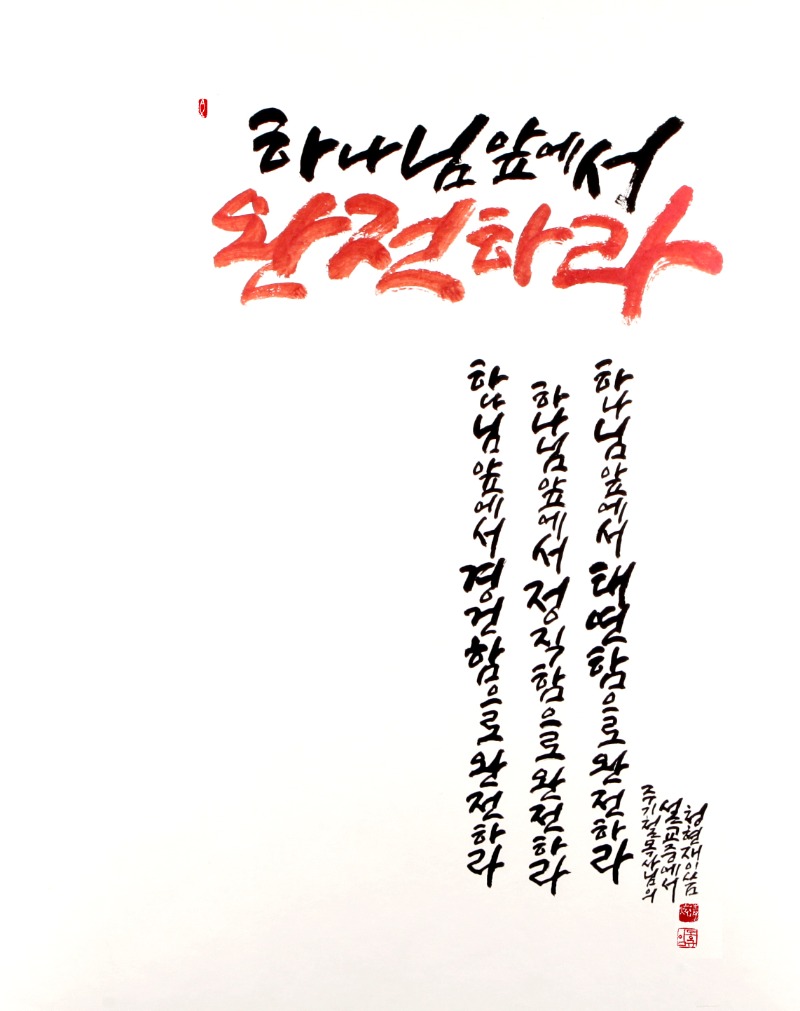 하나님 앞에서
완전하라
하나님 앞에서 경건함으로 완전하라
하나님 앞에서 정직함으로 완전하라
하나님 앞에서 태연함으로 완전하라
주기철 목사님의
설교 중에서
청현재이